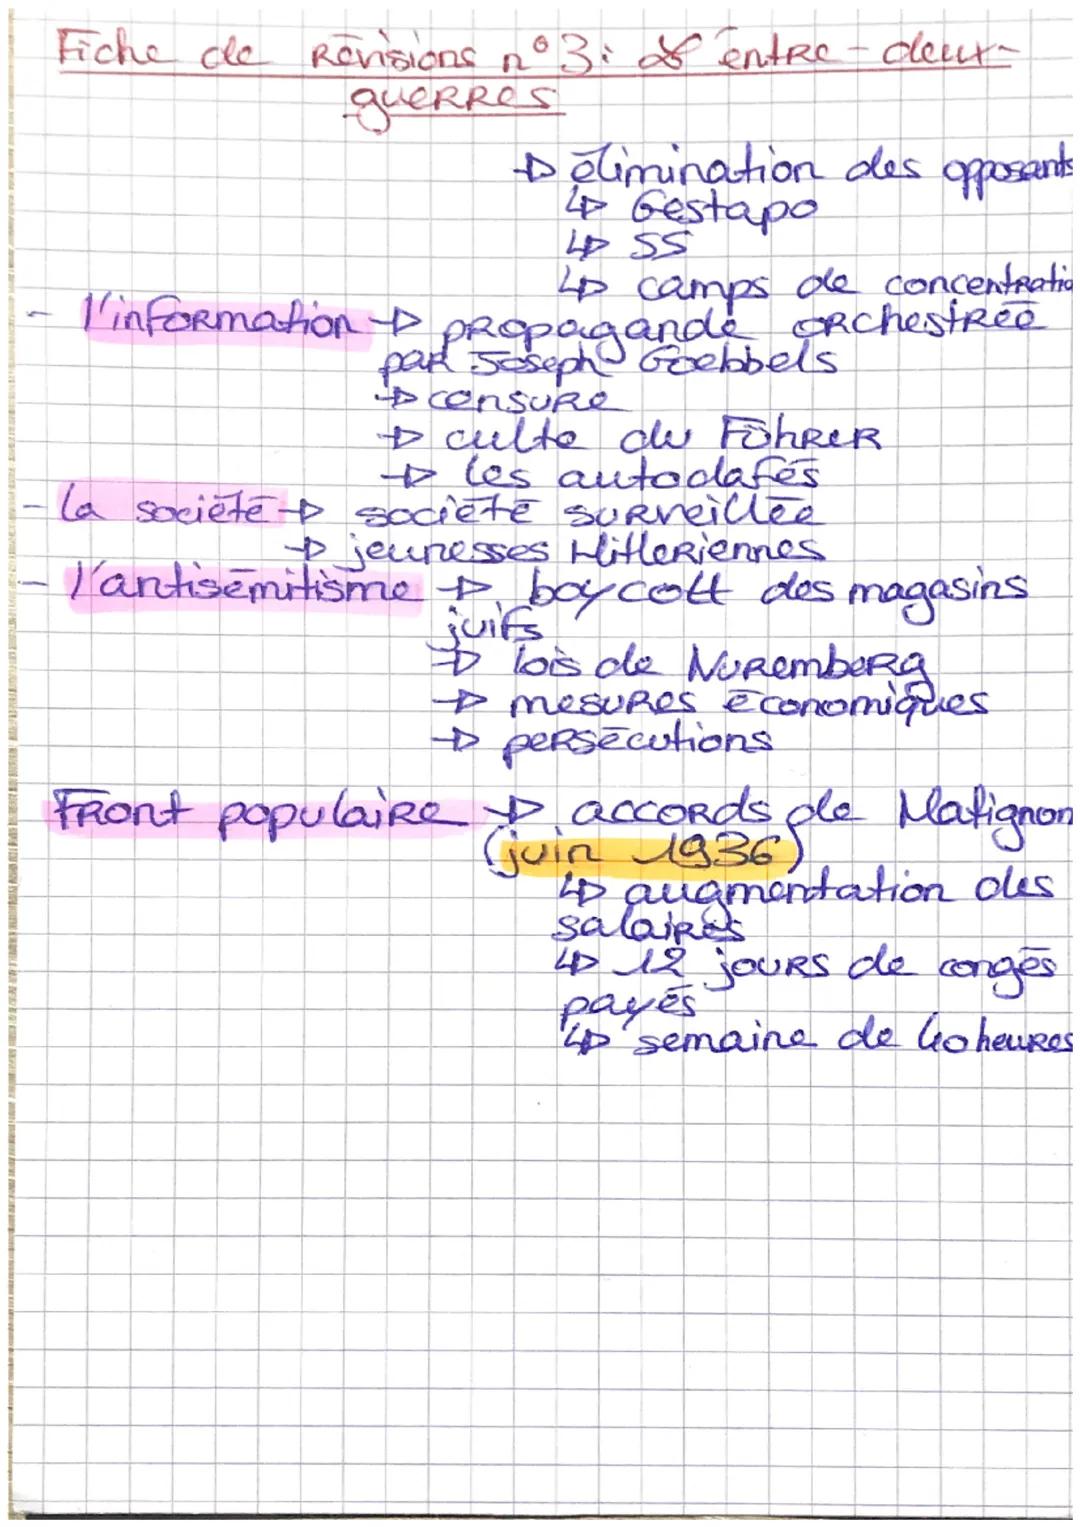 Fiche de Révisions n°3: L'entre-deux-
guerres
→ élimination des opposants
↳ Gestapo
↳ SS
↳ camps de concentratio
- l'information → propagande orchestrée
par Joseph Goebbels
→ censure
→ culte du Führer
→ les autodafés
- la société → société surveillée
→ jeunesses Hitleriennes
- l'antisémitisme → boycott des magasins
juifs
→ lois de Nuremberg
→ mesures économiques
→ persécutions
Front populaire → accords de Matignon
(juin 1936)
↳ augmentation des
salaires
↳ 12 jours de congés
payés
↳ semaine de 40 heures